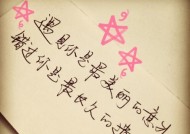 遇见你是最美丽的意外
错过你是最长久的